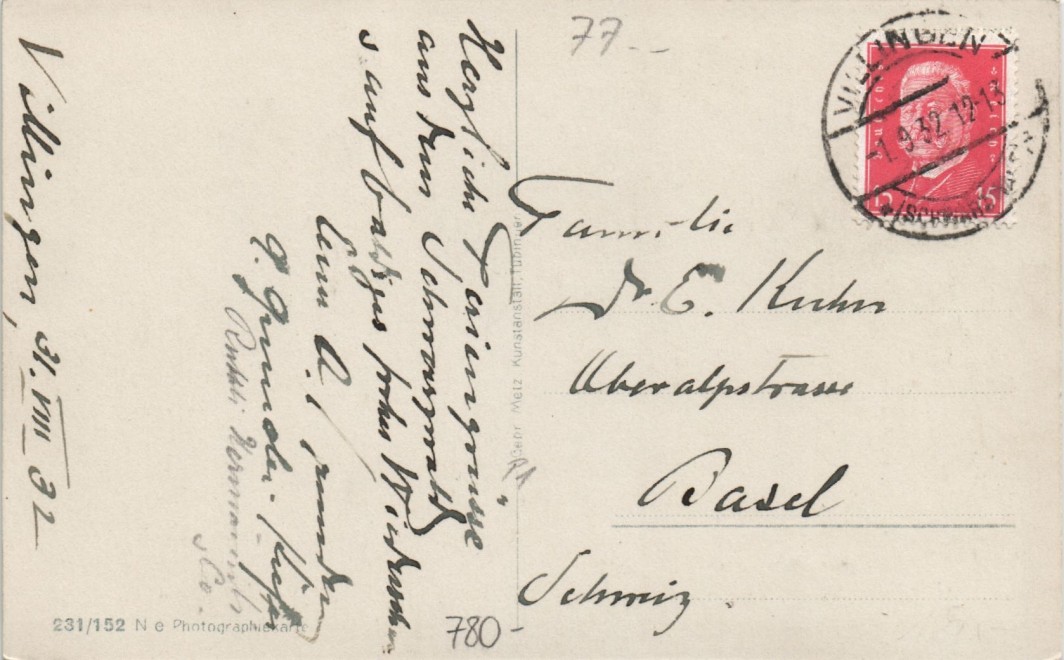 Villingen, 31. VIII 32
Herzliche Feriengrüsse
aus dem Schwarzwald
auf baldiges frohes Wiedersehen
231/152 N e Photographiekarte
Gebr Metz Kunstanstalt, Tübingen
77.-
780-
VILLINGEN
-1.9.32.12-13
(SCHWARZWALD)
15 15
Familie
Dr E. Kuhn
Oberalpstrasse
Basel
Schweiz.